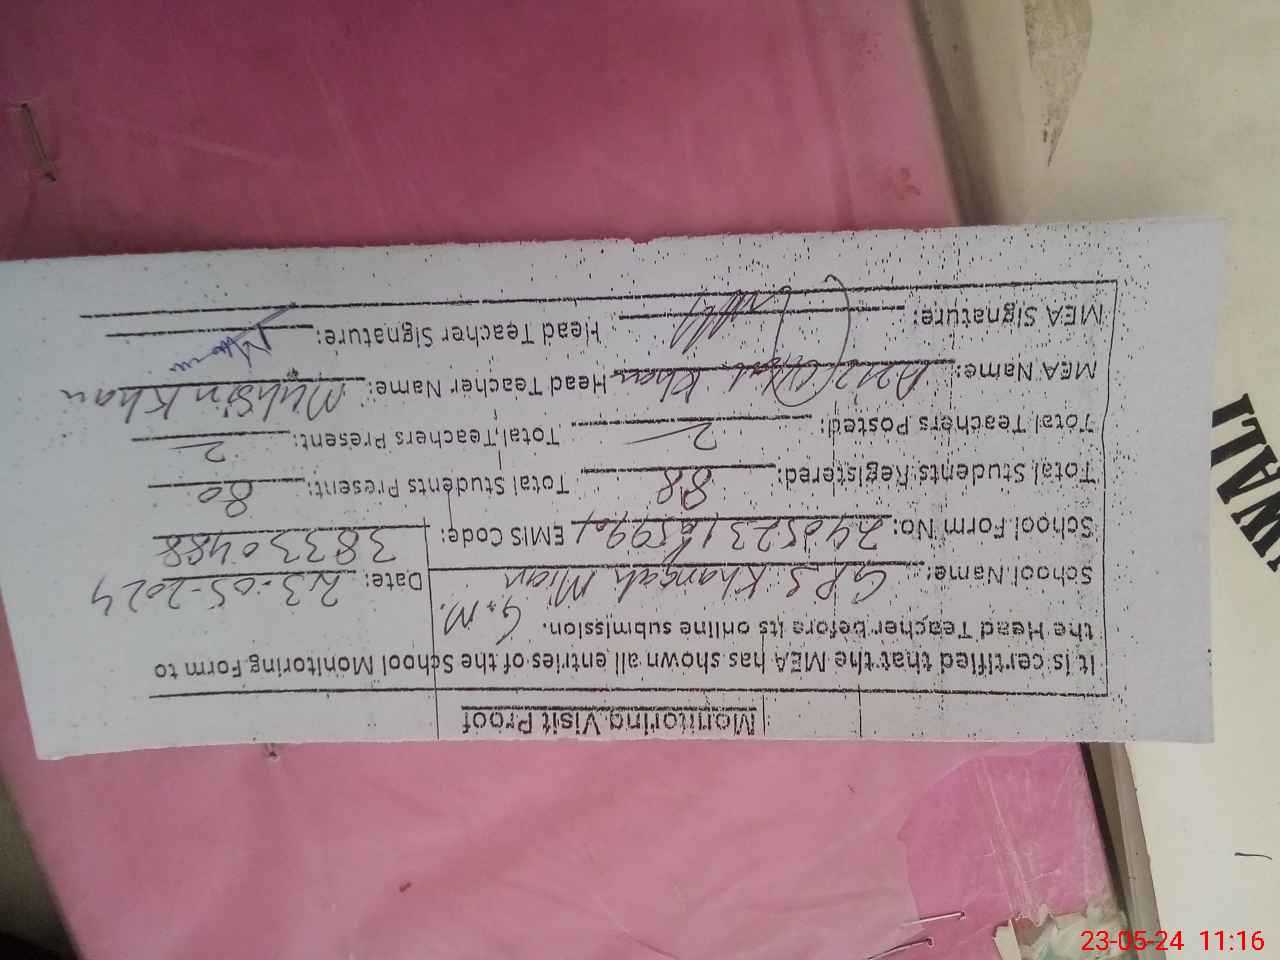 Monitoring Visit Proof
It is certified that the MEA has shown all entries of the School Monitoring Form to
the Head Teacher before its online submission. G.M.
School Name: GPS Khanqah Mian Date: 23-05-2024
School Form No: EMIS Code: 38330488
Total Students Registered: 88 Total Students Present: 80
Total Teachers Posted: 2 Total Teachers Present: 2
MEA Name: Khan Head Teacher Name: Muhsin Khan
MEA Signature: Head Teacher Signature:
WALI
23-05-24 11:16